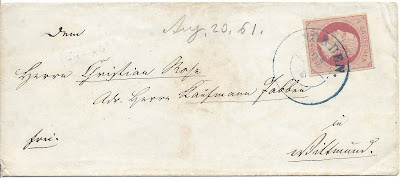 Dem
Aug. 20. 61.
Herrn Christian Rose
Adr. Herrn Kaufmann Jabben
frei.
in
Wittmund.